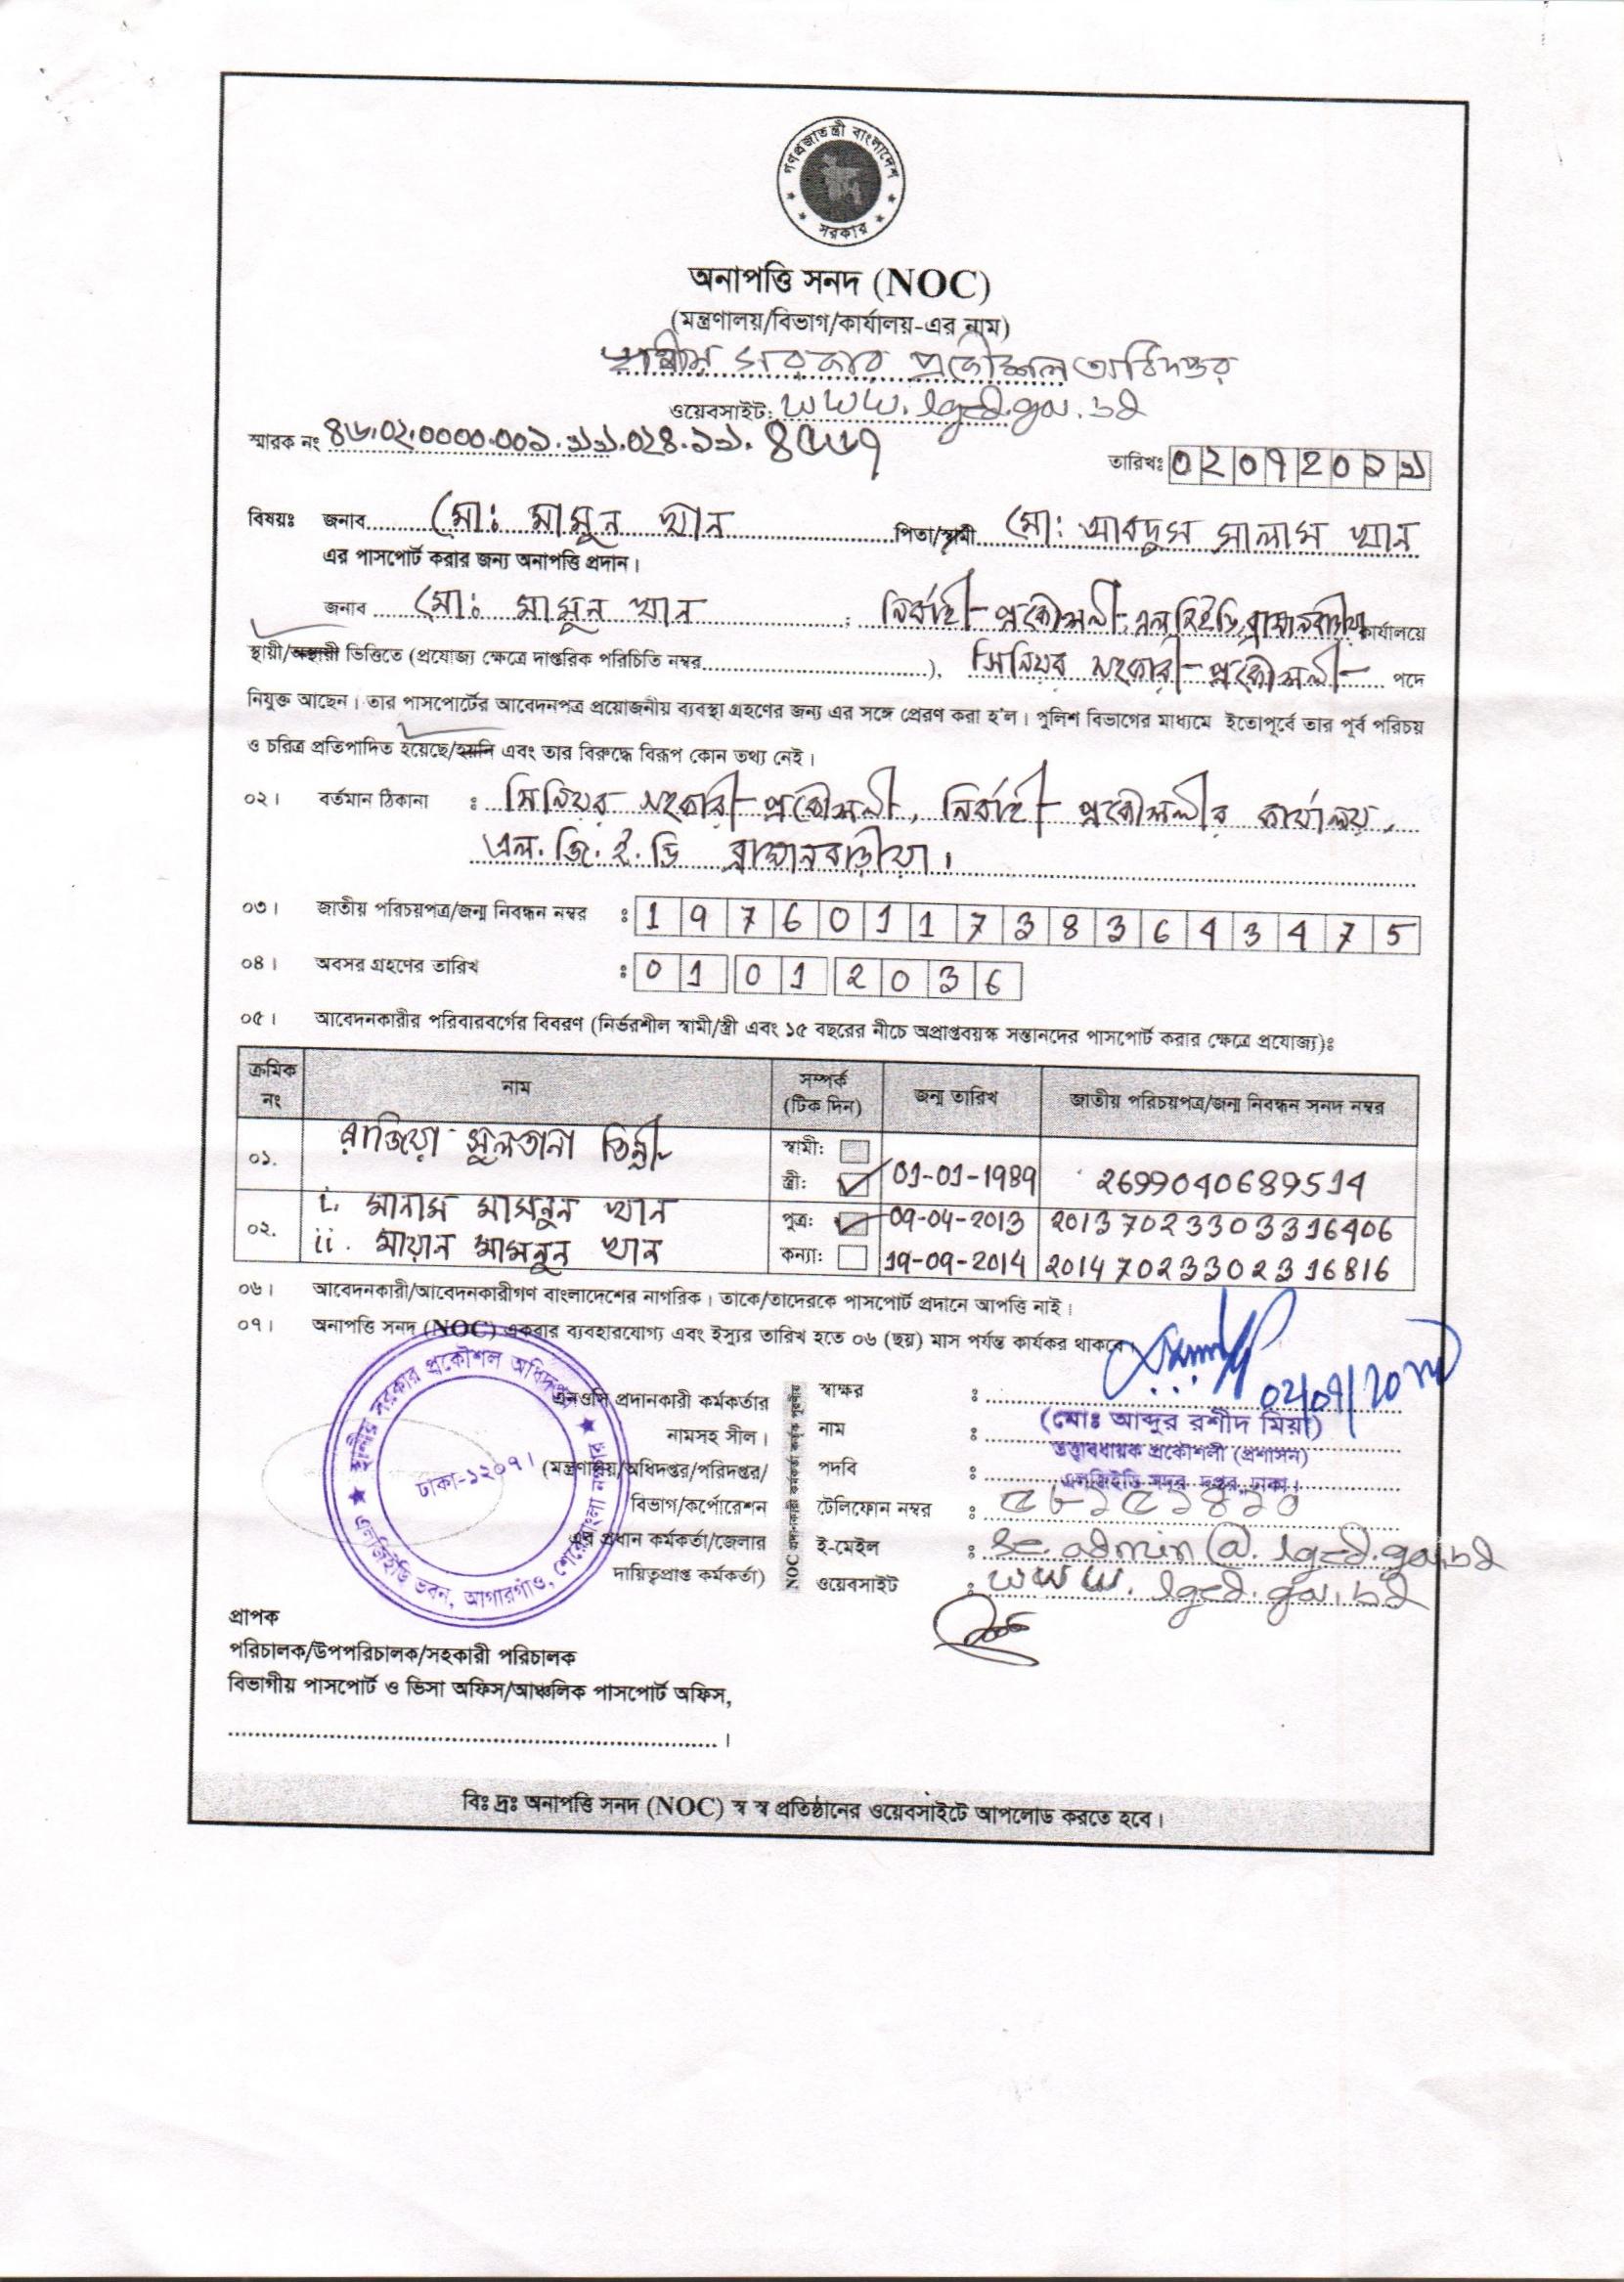 গণপ্রজাতন্ত্রী বাংলাদেশ
সরকার
অনাপত্তি সনদ (NOC)
(মন্ত্রণালয়/বিভাগ/কার্যালয়-এর নাম)
স্থানীয় সরকার প্রকৌশল অধিদপ্তর
ওয়েবসাইট: www.lged.gov.bd
স্মারক নং ৪৬.০২.০০০০.০০১
তারিখঃ
বিষয়ঃ জনাব মোঃ মামুন খান পিতা/স্বামী মোঃ আবদুস সালাম খান
এর পাসপোর্ট করার জন্য অনাপত্তি প্রদান।
জনাব মোঃ মামুন খান, নির্বাহী প্রকৌশলী, এলজিইডি, ব্রাহ্মানবাড়ীয়া কার্যালয়ে
স্থায়ী/অস্থায়ী ভিত্তিতে (প্রযোজ্য ক্ষেত্রে দাপ্তরিক পরিচিতি নম্বর..............................), সিনিয়র সহকারী প্রকৌশলী পদে
নিযুক্ত আছেন। তার পাসপোর্টের আবেদনপত্র প্রয়োজনীয় ব্যবস্থা গ্রহণের জন্য এর সঙ্গে প্রেরণ করা হ'ল। পুলিশ বিভাগের মাধ্যমে ইতোপূর্বে তার পূর্ব পরিচয়
ও চরিত্র প্রতিপাদিত হয়েছে/হয়নি এবং তার বিরুদ্ধে বিরূপ কোন তথ্য নেই।
০২। বর্তমান ঠিকানা : সিনিয়র সহকারী প্রকৌশলী, নির্বাহী প্রকৌশলীর কার্যালয়,
এল.জি.ই.ডি ব্রাহ্মানবাড়ীয়া।
০৩। জাতীয় পরিচয়পত্র/জন্ম নিবন্ধন নম্বর : 19760117383643475
০৪। অবসর গ্রহণের তারিখ : 01 01 2036
০৫। আবেদনকারীর পরিবারবর্গের বিবরণ (নির্ভরশীল স্বামী/স্ত্রী এবং ১৫ বছরের নীচে অপ্রাপ্তবয়স্ক সন্তানদের পাসপোর্ট করার ক্ষেত্রে প্রযোজ্য)ঃ
ক্রমিক নং নাম সম্পর্ক (টিক দিন) জন্ম তারিখ জাতীয় পরিচয়পত্র/জন্ম নিবন্ধন সনদ নম্বর
০১. রাজিয়া সুলতানা তিন্নী স্বামী:
স্ত্রী: 01-01-1989 2699040689514
০২. i. মানাম মামনুন খান পুত্র: 09-04-2013 20137023303316406
ii. মায়ান মামনুন খান কন্যা: 19-09-2014 20147023302316816
০৬। আবেদনকারী/আবেদনকারীগণ বাংলাদেশের নাগরিক। তাকে/তাদেরকে পাসপোর্ট প্রদানে আপত্তি নাই।
০৭। অনাপত্তি সনদ (NOC) একবার ব্যবহারযোগ্য এবং ইস্যুর তারিখ হতে ০৬ (ছয়) মাস পর্যন্ত কার্যকর থাকবে।
স্থানীয় সরকার প্রকৌশল অধিদপ্তর
ঢাকা-১২০৭।
এলজিইডি ভবন, আগারগাঁও, শেরেবাংলা নগর
এনওসি প্রদানকারী কর্মকর্তার
নামসহ সীল।
(মন্ত্রণালয়/অধিদপ্তর/পরিদপ্তর/
বিভাগ/কর্পোরেশন
এর প্রধান কর্মকর্তা/জেলার
দায়িত্বপ্রাপ্ত কর্মকর্তা)
NOC প্রদানকারী কর্মকর্তা কর্তৃক পূরণীয়
স্বাক্ষর :
নাম : (মোঃ আব্দুর রশীদ মিয়া)
পদবি : তত্ত্বাবধায়ক প্রকৌশলী (প্রশাসন)
এলজিইডি সদর দপ্তর, ঢাকা।
টেলিফোন নম্বর :
ই-মেইল : se.admin@.lged.gov.bd
ওয়েবসাইট : www.lged.gov.bd
প্রাপক
পরিচালক/উপপরিচালক/সহকারী পরিচালক
বিভাগীয় পাসপোর্ট ও ভিসা অফিস/আঞ্চলিক পাসপোর্ট অফিস,
..............................।
বিঃ দ্রঃ অনাপত্তি সনদ (NOC) স্ব স্ব প্রতিষ্ঠানের ওয়েবসাইটে আপলোড করতে হবে।